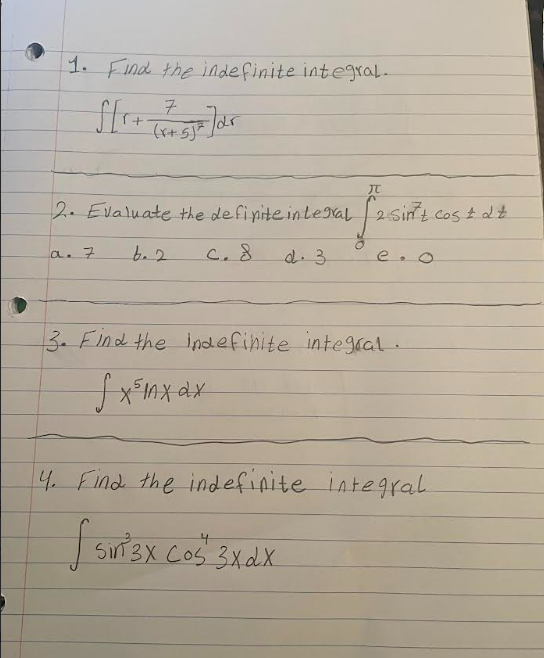 1. Find the indefinite integral.
∫[r + 7/(r+5)⁷]dr
2. Evaluate the definite integral ∫₀^π 2 sin⁷t cos t dt
a. 7 b. 2 c. 8 d. 3 e. 0
3. Find the indefinite integral.
∫ x⁵ lnx dx
4. Find the indefinite integral
∫ sin³3x cos⁴3x dx